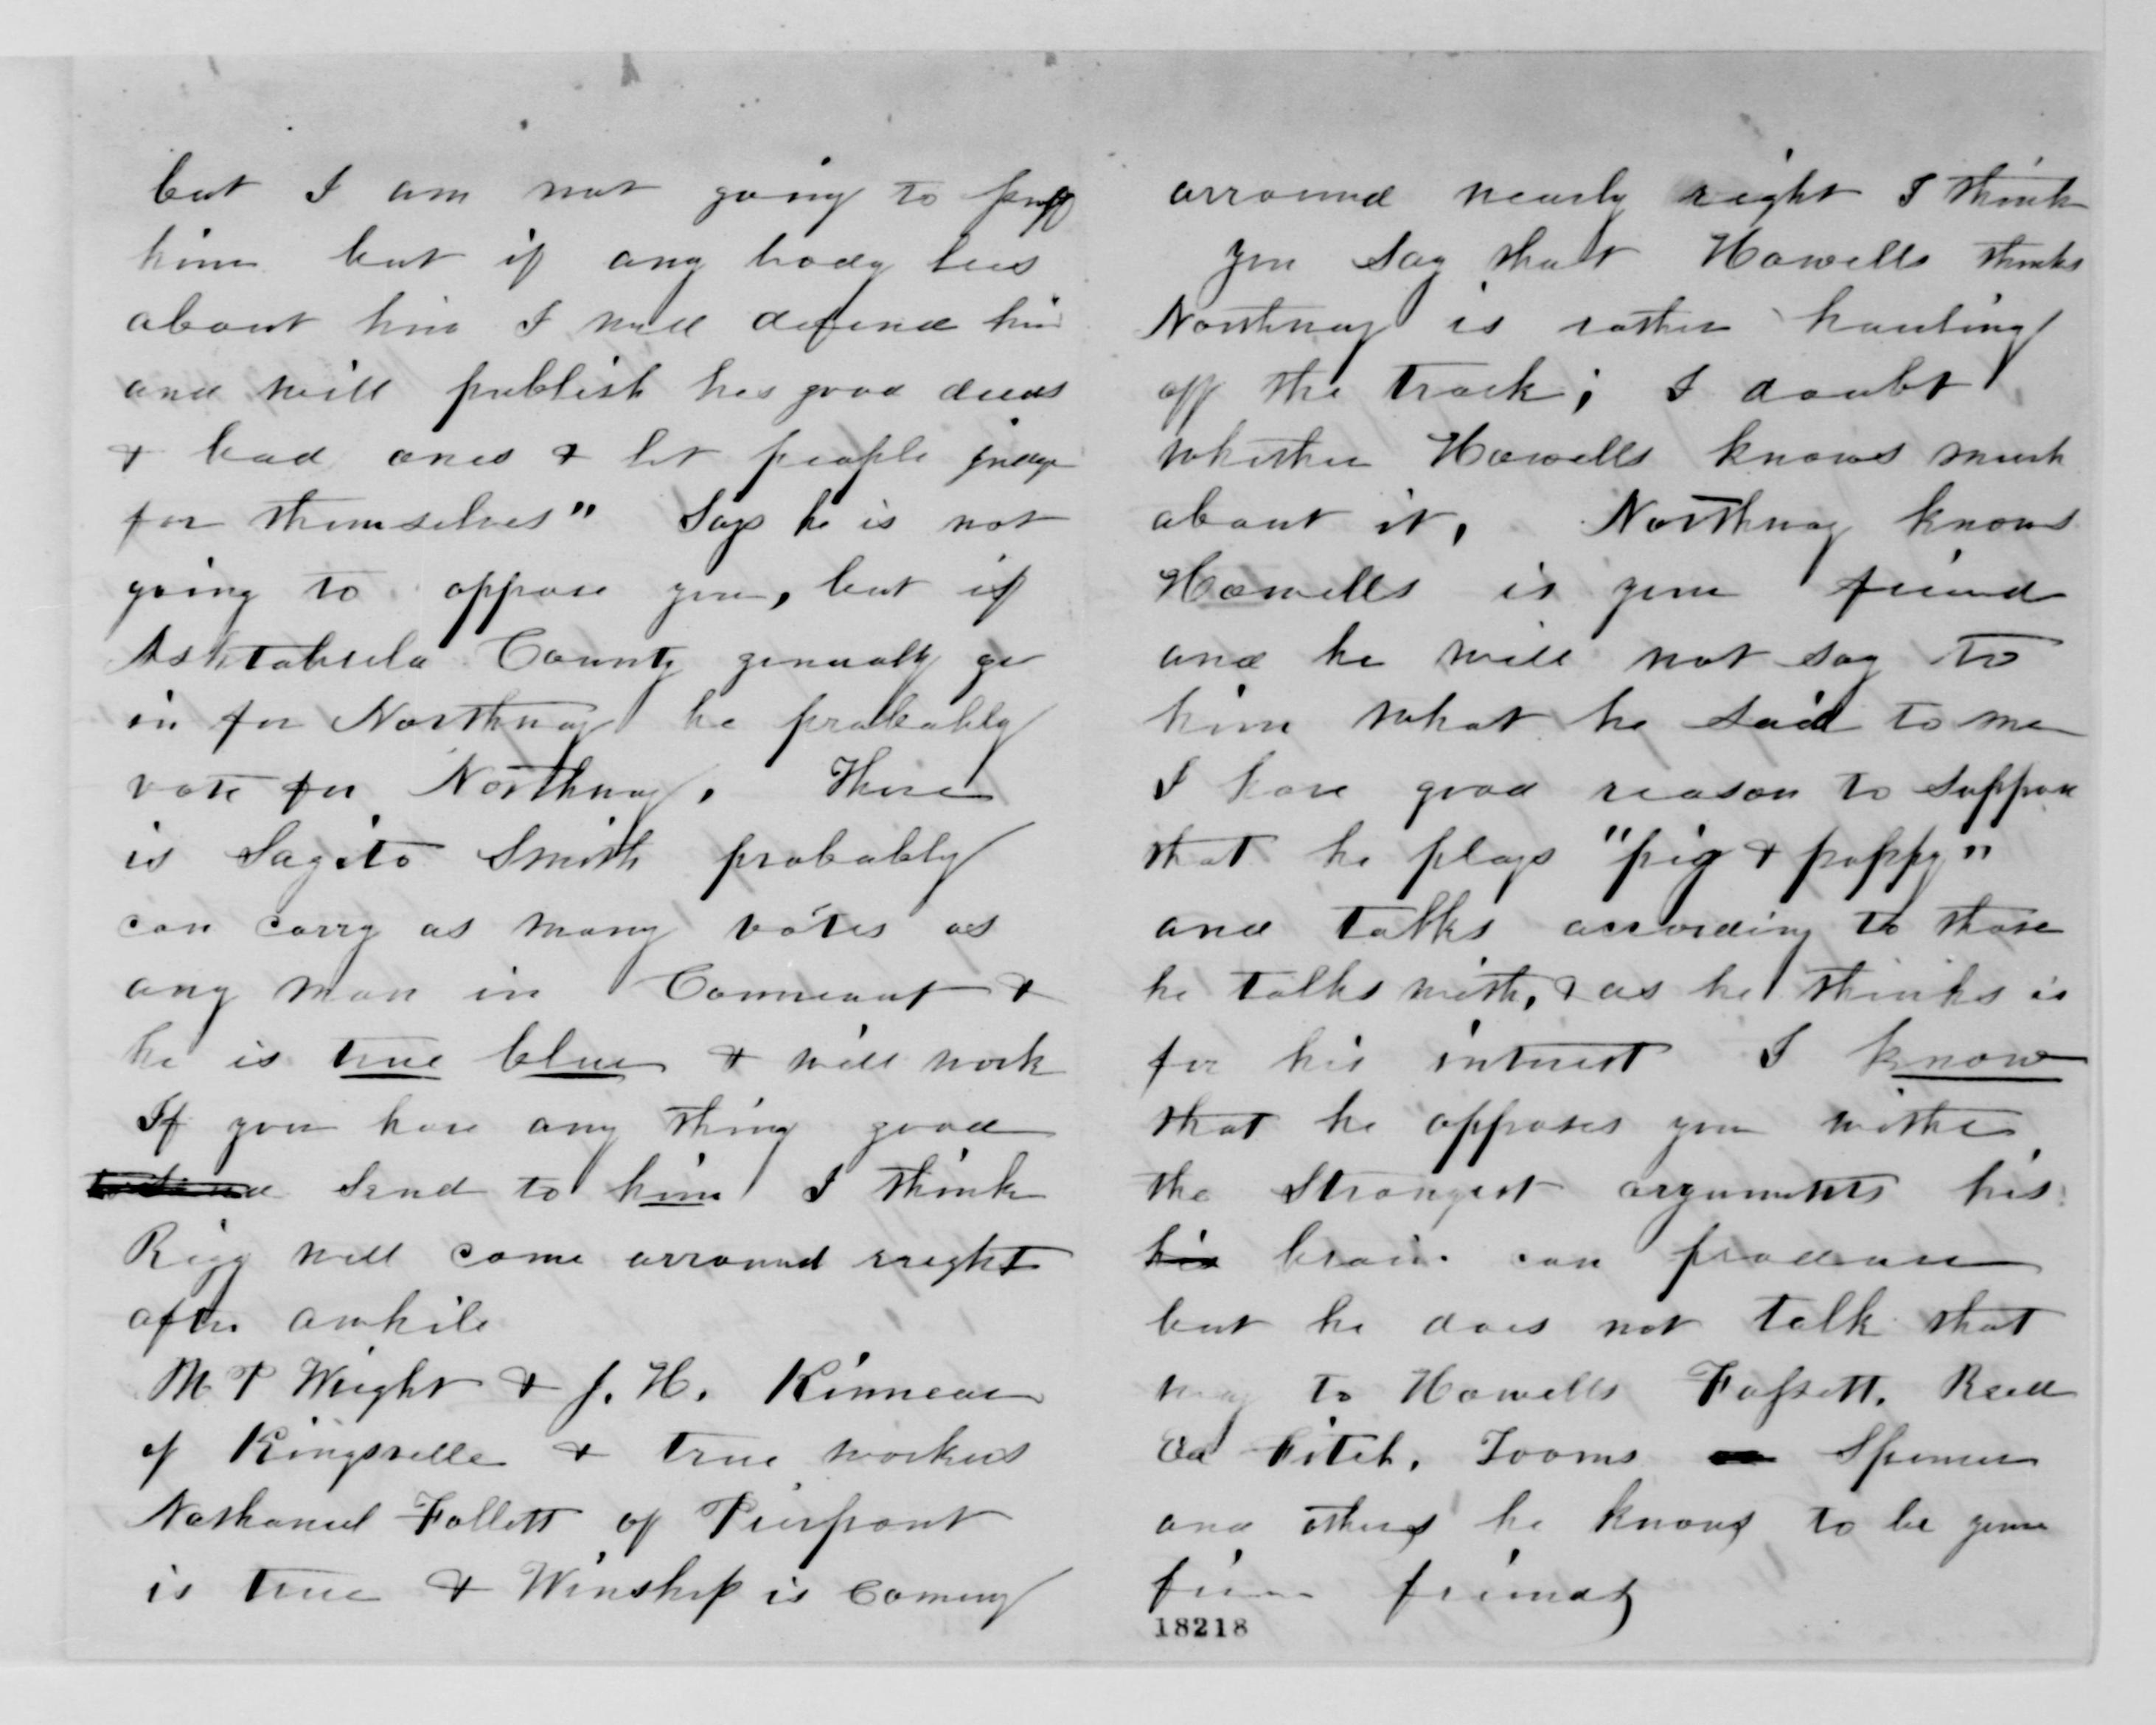 but I am not going to puff
him but if any body lies
about him I will defend him
and will publish his good deeds
& bad ones & let people judge
for themselves" Says he is not
going to oppose you, but if
Ashtabula County genually go
in for Northway he probably
vote for Northway. There
is Sagito Smith probably
can carry as many votes as
any man in Conneaut &
he is true blue & will work
If you have any thing good
send to him I think
Rigg will come arround rright
after awhile
M P Wright & J. H. Kinnear
of Kingsville & true workers
Nathaniel Follett of Pierpont
is true & Winship is coming
arround nearly right I think
You say that Howells thinks
Northway is rather hauling
off the track; I doubt
whether Howells knows much
about it, Northway knows
Howells is your friend
and he will not say to
him what he said to me
I have good reason to suppose
that he plays "pig & poppy"
and talks according to those
he talks with, & as he thinks is
for his interest I know
that he opposes you withe
the strongest arguments his
his brain can produce
but he does not talk that
way to Howells Fassett. Reed
Ed Fitch. Tooms Spencer
and others he knows to be your
firm friends
18218